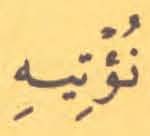 نُؤْتِيهِ